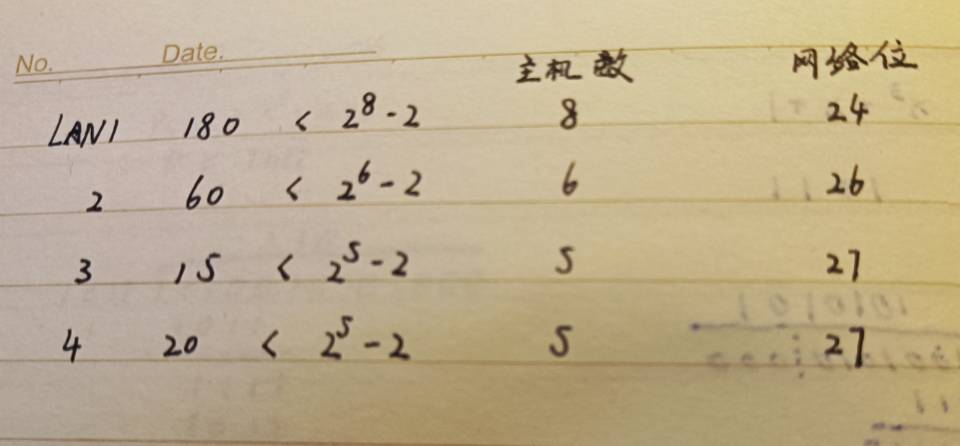 No. Date.
主机数 网络位
LAN1 180 < 2⁸-2 8 24
2 60 < 2⁶-2 6 26
3 15 < 2⁵-2 5 27
4 20 < 2⁵-2 5 27